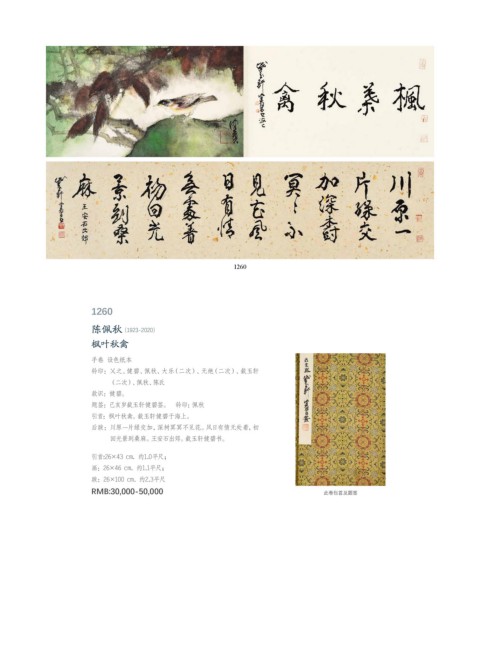 楓葉秋禽
截玉軒
川原一
片绿交
加深樹
冥冥不
見花風
日有情
無處著
初回光
景到桑
麻
王安石出郊
1260
1260
陈佩秋 (1923-2020)
枫叶秋禽
手卷 设色纸本
钤印：父之、健碧、佩秋、大乐（二次）、天地（二次）、截玉轩
（二次）、佩秋、陈氏
款识：健碧。
题签：己亥岁截玉轩健碧签。 钤印：佩秋
引首：枫叶秋禽。截玉轩健碧于海上。
后跋：川原一片绿交加，深树冥冥不见花。风日有情无处着，初
回光景到桑麻。王安石出郊。截玉轩健碧书。
引首:26×43 cm. 约1.0平尺；
画：26×46 cm. 约1.1平尺；
跋：26×100 cm. 约2.3平尺
RMB:30,000-50,000